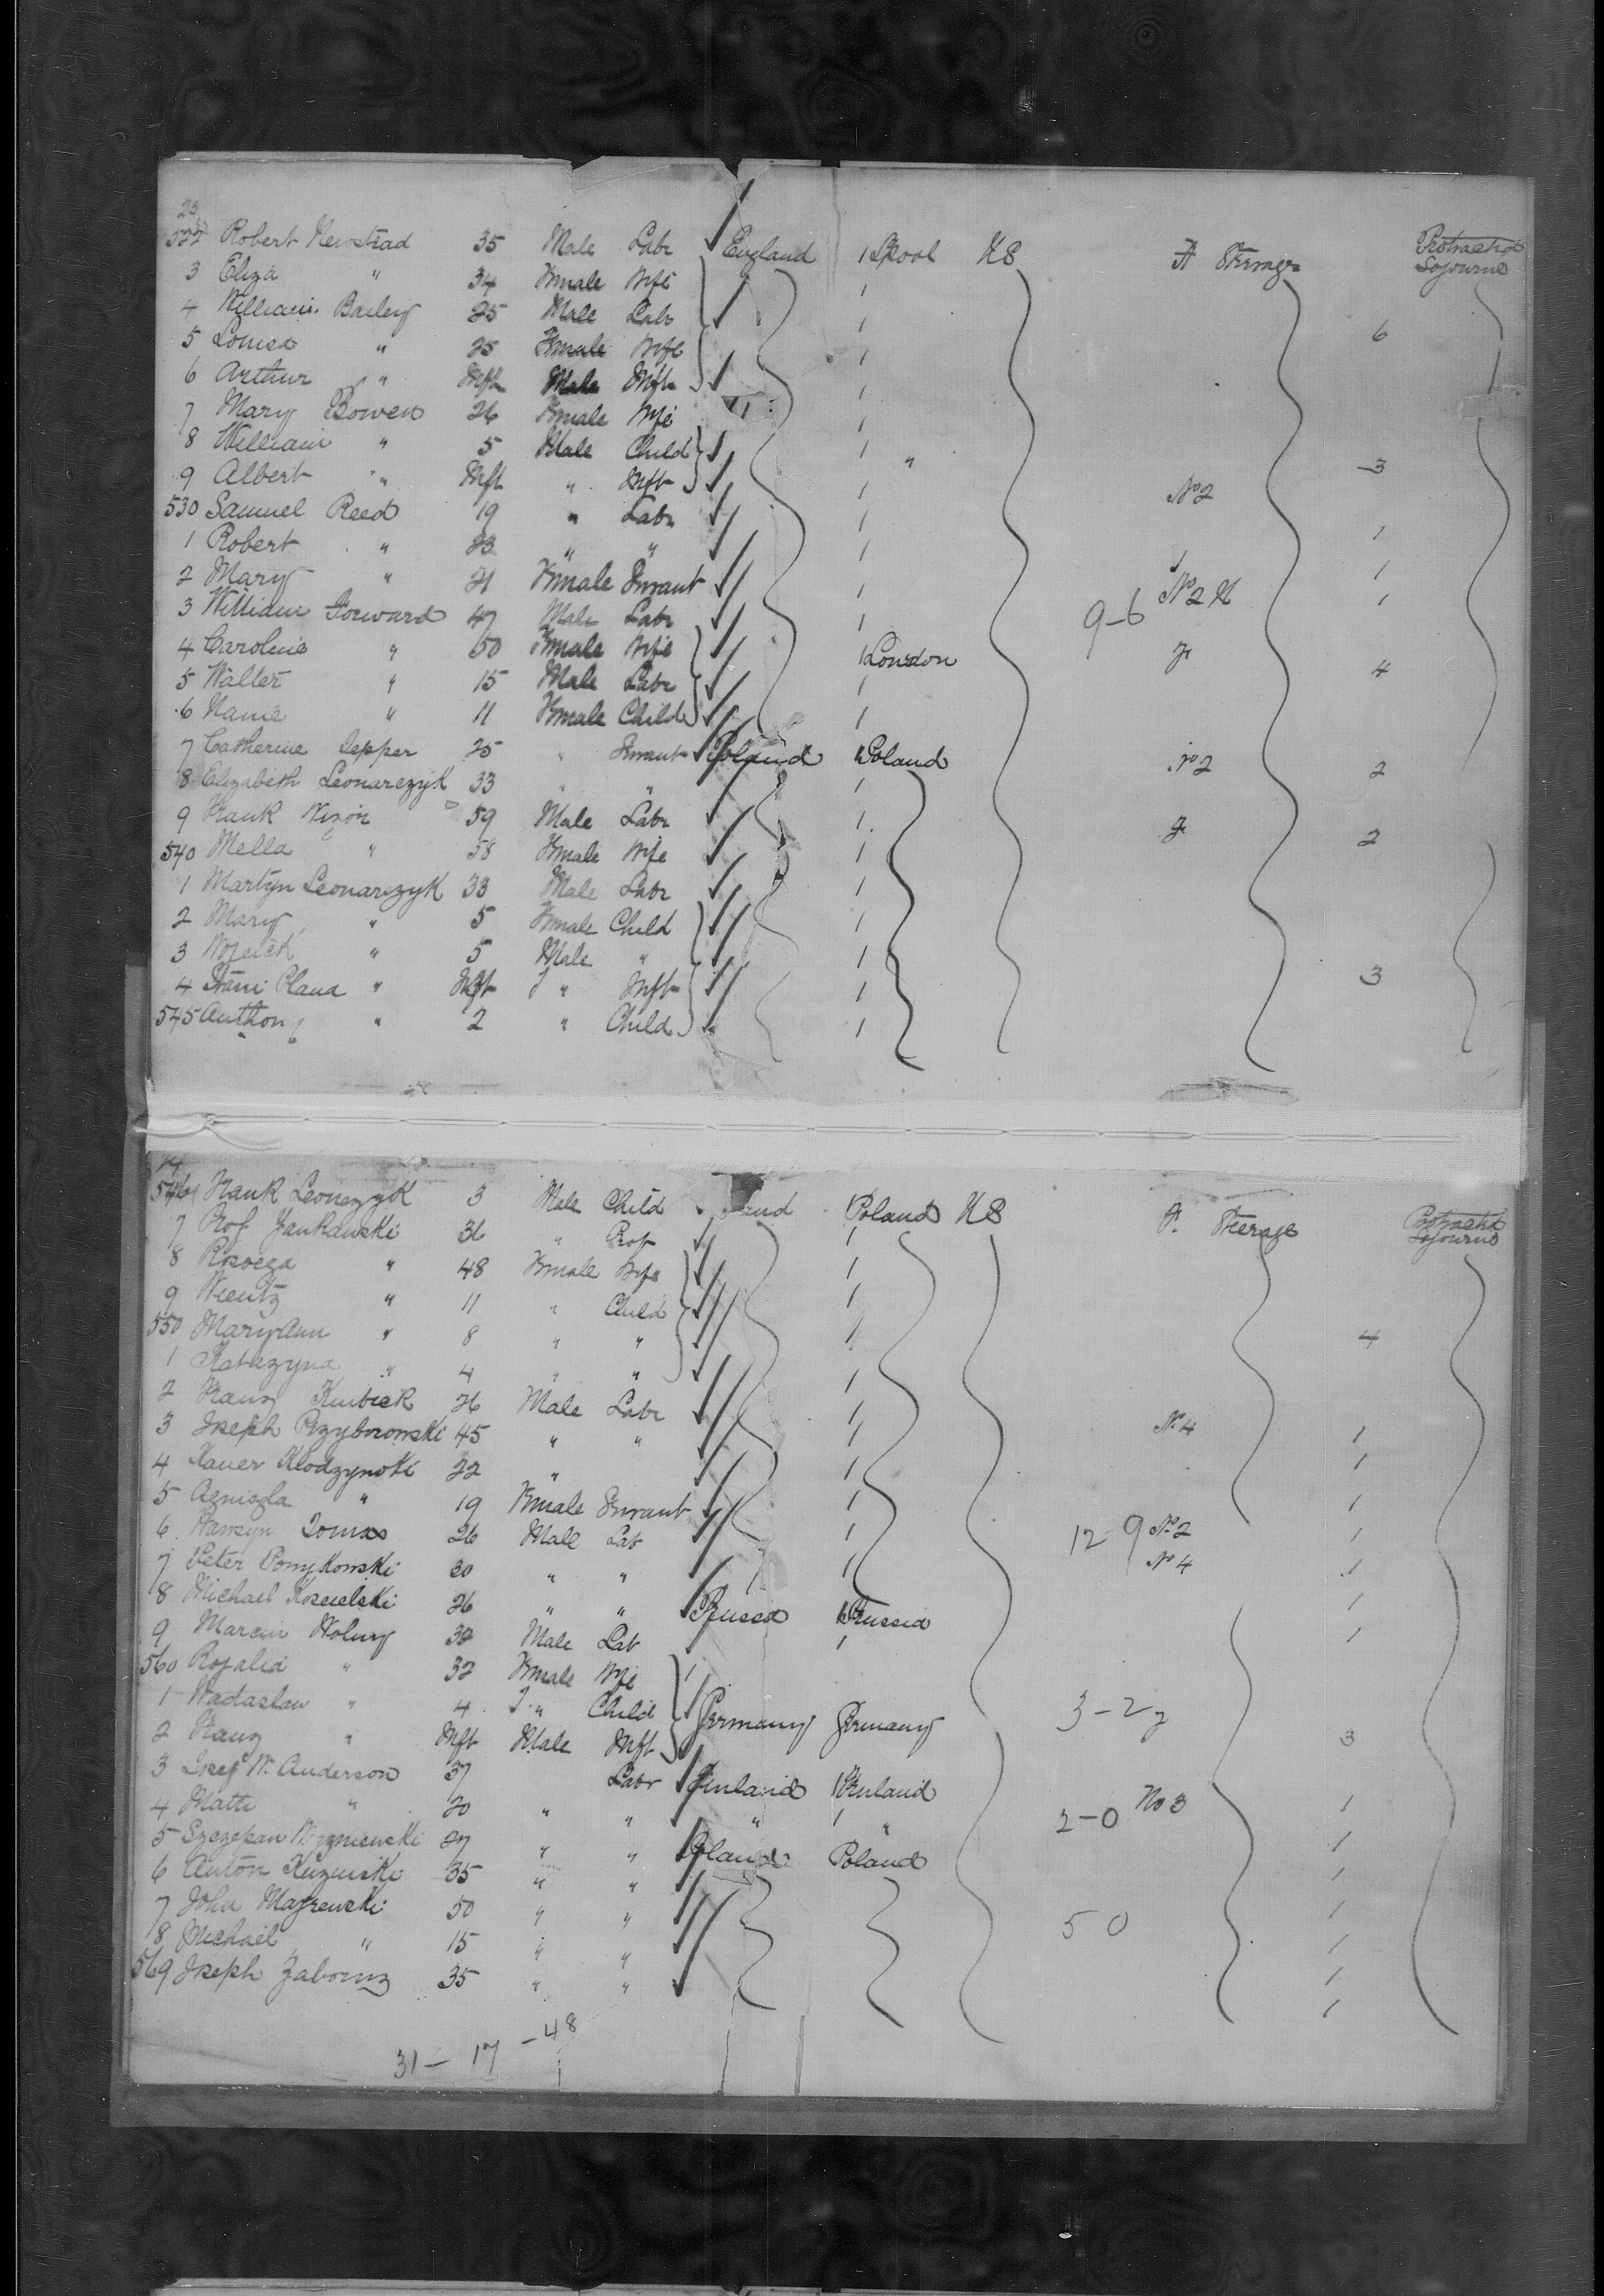 23
522 Robert Newstead 35 Male Labr England 1 Lpool US A Steerage Protracted Sojourn
3 Eliza " 34 Female Wife 1
4 William Bailey 25 Male Labr 1 6
5 Louisa " 25 Female Wife 1
6 Arthur " Inft Male Inft 1
7 Mary Bowen 26 Female Wife 1
8 William " 5 Male Child 1 " 3
9 Albert " Inft " Inft 1 No 2
530 Samuel Reed 19 " Labr 1 1
1 Robert " 23 " " 1 1
2 Mary " 21 Female Servant 1 No 2 1
3 William Forward 47 Male Labr 1 9-6
4 Caroline " 50 Female Wife 1 London 4
5 Walter " 15 Male Labr 1
6 Namie " 11 Female Child 1
7 Catherine Depper 25 " Servant Poland Poland No 2 2
8 Elizabeth Leonarczyk 33 " " 1
9 Frank Nizon 59 Male Labr 1 2
540 Mella " 58 Female Wife 1
1 Martyn Leonarczyk 33 Male Labr 1
2 Mary " 5 Female Child 1
3 Wojeich " 5 Male " 1
4 " Inft " Inft 1 3
545 Anthon " 2 " Child 1
546 Frank Leonczyk 3 Male Child Poland US Steerage Protracted Sojourn
7 Prof Jankawski 36 " Prof 1
8 " 48 Female Wife 1
9 " 11 " Child 1
550 MaryAnn " 8 " " 1 4
1 Katazyna " 4 " "
2 Franz Kubick 26 Male Labr 1
3 Joseph Przyborowski 45 " " 1 No 4 1
4 Xaver Klodzynski 22 " 1 1
5 " 19 Female Servant 1 1
6 Tomas 26 Male Lab 1 12 9 No 2 1
7 Peter Pomykowski 30 " " 1 No 4 1
8 Michael Koscielski 26 " " Prussia Prussia 1
9 Marcin Wolny 30 Male Lab 1 1
560 Rozalia " 32 Female Wife
1 Wadaslaw " 4 " Child Germany Germany 3-2
2 Franz " Inft Male Inft 3
3 W. Anderson 37 Labr Finland Finland
4 Matti " 20 " " " 1 " 2-0 No 3 1
5 Szczepan 27 " " Poland Poland 1
6 Anton Kuzinski 35 " " 1
7 John Majzewski 50 " " 5 0 1
8 Michael " 15 " " 1
569 Joseph 35 " " 1
1
31- 17 -48